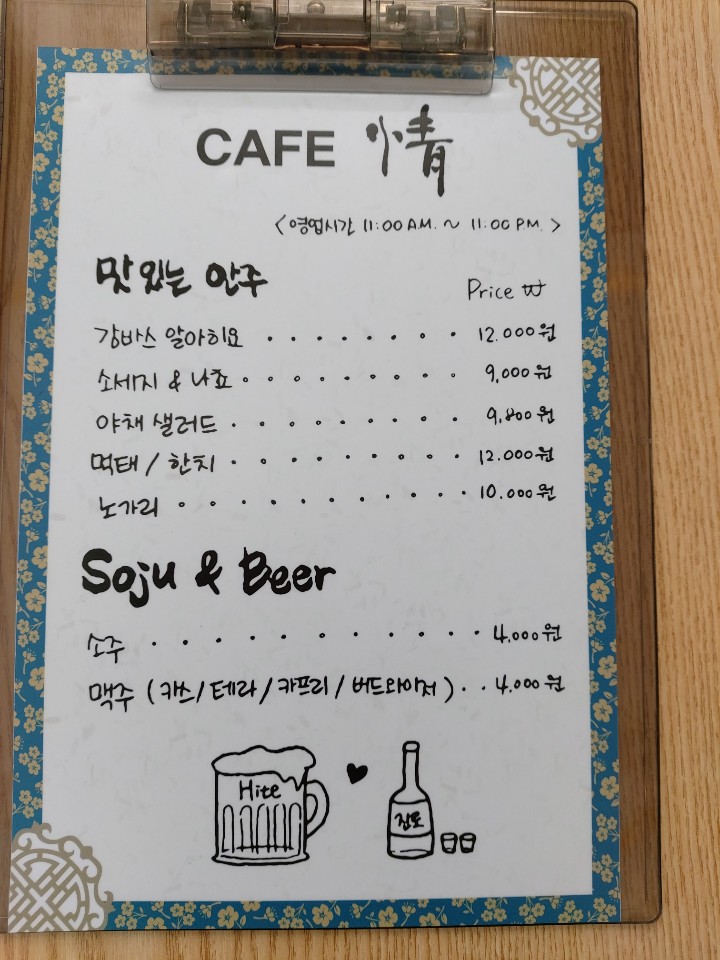 CAFE 情
<영업시간 11:00 A.M. ~ 11:00 P.M.>
맛있는 안주
Price ₩
감바스 알아히요 · · · · · · · · 12.000원
소세지 & 나쵸 · · · · · · · · · 9,000원
야채 샐러드 · · · · · · · · · 9,800원
먹태 / 한치 · · · · · · · · · 12.000원
노가리 · · · · · · · · · · 10.000원
Soju & Beer
소주 · · · · · · · · · · · 4,000원
맥주 (카스/테라/카프리/버드와이저) · · 4.000원
Hite
진로